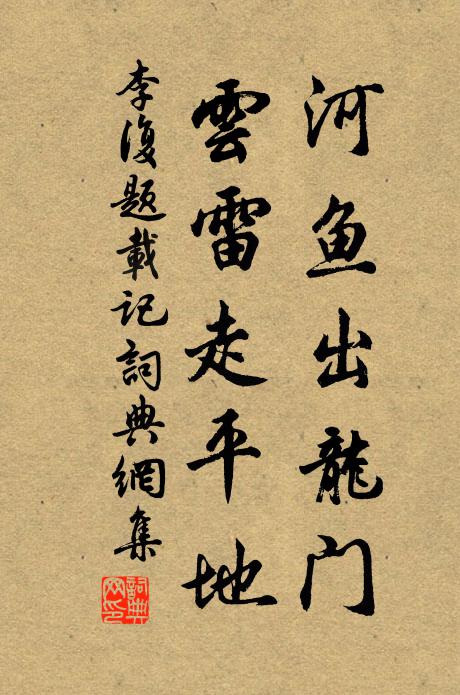 河鱼出龍门
雲雷走平地
李復題載記詞典網集
詞典网印